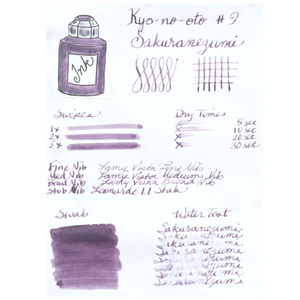 Kyo-no-oto #9
Sakuranezumi
Ink
Swipes
Dry Times
1x
2x
3x
5 sec
10 sec
20 sec
30 sec
Fine Nib Lamy Vista Fine Nib
Med Nib Lamy Vista Medium Nib
Broad Nib Lamy Vista Broad Nib
Stub Nib Leonardo 1.1 Stub
Swab
Water Test
Sakuranezumi
Sakuranezumi
Sakuranezumi
Sakuranezumi
Sakuranezumi
Sakuranezumi